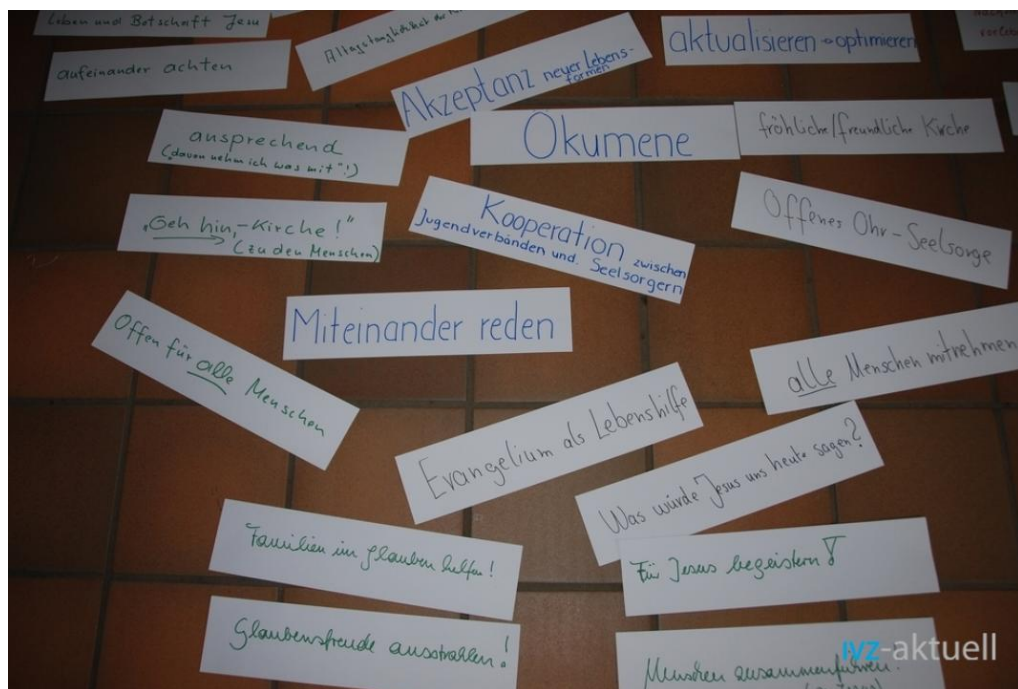 Leben und Botschaft Jesu
aufeinander achten
Alltagstauglichkeit der
Akzeptanz neuer Lebens-
formen
aktualisieren → optimieren
ansprechend
("davon nehm ich was mit"!)
Ökumene
fröhliche/freundliche Kirche
„Geh hin„-Kirche!"
(zu den Menschen)
Kooperation zwischen
Jugendverbänden und. Seelsorgern
Offenes Ohr-Seelsorge
Miteinander reden
Offen für alle Menschen
alle Menschen mitnehmen
Evangelium als Lebenshilfe
Was würde Jesus uns heute sagen?
Familien im Glauben helfen!
Für Jesus begeistern!
Glaubensfreude ausstrahlen!
Menschen zusammenführen.
ivz-aktuell